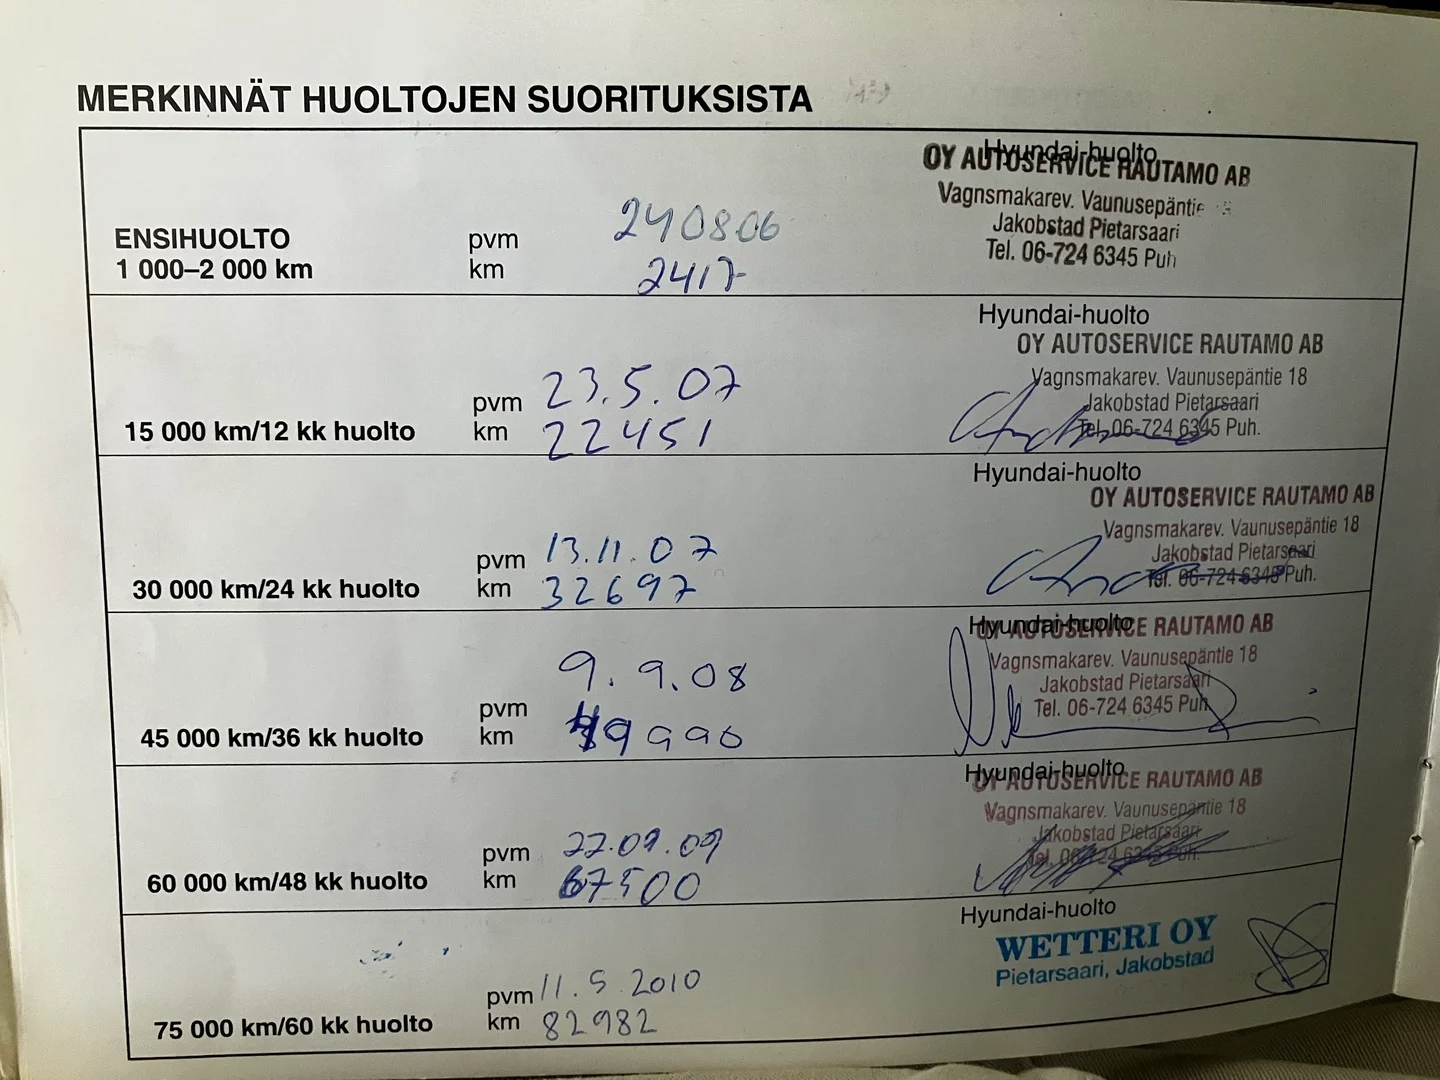 MERKINNÄT HUOLTOJEN SUORITUKSISTA
Hyundai-huolto
OY AUTOSERVICE RAUTAMO AB
Vagnsmakarev. Vaunusepäntie
Jakobstad Pietarsaari
Tel. 06-724 6345 Puh
ENSIHUOLTO
pvm 240806
1 000–2 000 km
km 2417
Hyundai-huolto
OY AUTOSERVICE RAUTAMO AB
Vagnsmakarev. Vaunusepäntie 18
Jakobstad Pietarsaari
Tel. 06-724 6345 Puh.
pvm 23.5.07
15 000 km/12 kk huolto
km 22451
Hyundai-huolto
OY AUTOSERVICE RAUTAMO AB
Vagnsmakarev. Vaunusepäntie 18
Jakobstad Pietarsaari
Tel. 06-724 6345 Puh.
pvm 13.11.07
30 000 km/24 kk huolto
km 32697
Hyundai-huolto
OY AUTOSERVICE RAUTAMO AB
Vagnsmakarev. Vaunusepäntie 18
Jakobstad Pietarsaari
Tel. 06-724 6345 Puh
pvm 9.9.08
45 000 km/36 kk huolto
km 49990
Hyundai-huolto
OY AUTOSERVICE RAUTAMO AB
Vagnsmakarev. Vaunusepäntie 18
Jakobstad Pietarsaari
Tel. 06-724 6345 Puh.
pvm 22.09.09
60 000 km/48 kk huolto
km 67500
Hyundai-huolto
WETTERI OY
Pietarsaari, Jakobstad
pvm 11.5.2010
75 000 km/60 kk huolto
km 82982